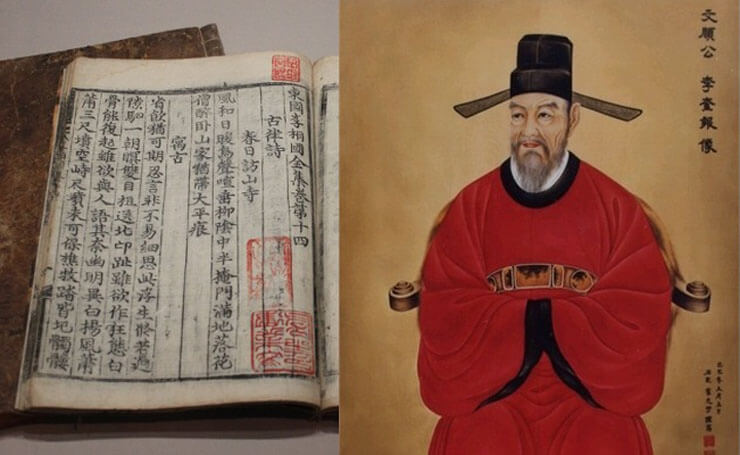 東國李相國全集卷第十四
古律詩
春日訪山寺
風和日暖鳥聲喧垂柳陰中半掩門滿地落花
僧醉卧山家猶帶大平痕
寓古
省飮猶可期忍言非不易細思此浮生脩若過
隙駒一朝瞑雙目徂送北邙趾雖欲作狂態白
骨能復起雖欲與人語其奈幽明異白楊風蕭
蕭三尺墳空峙尺墳未可保樵牧踏皆圮髑髏
文順公 李奎報像